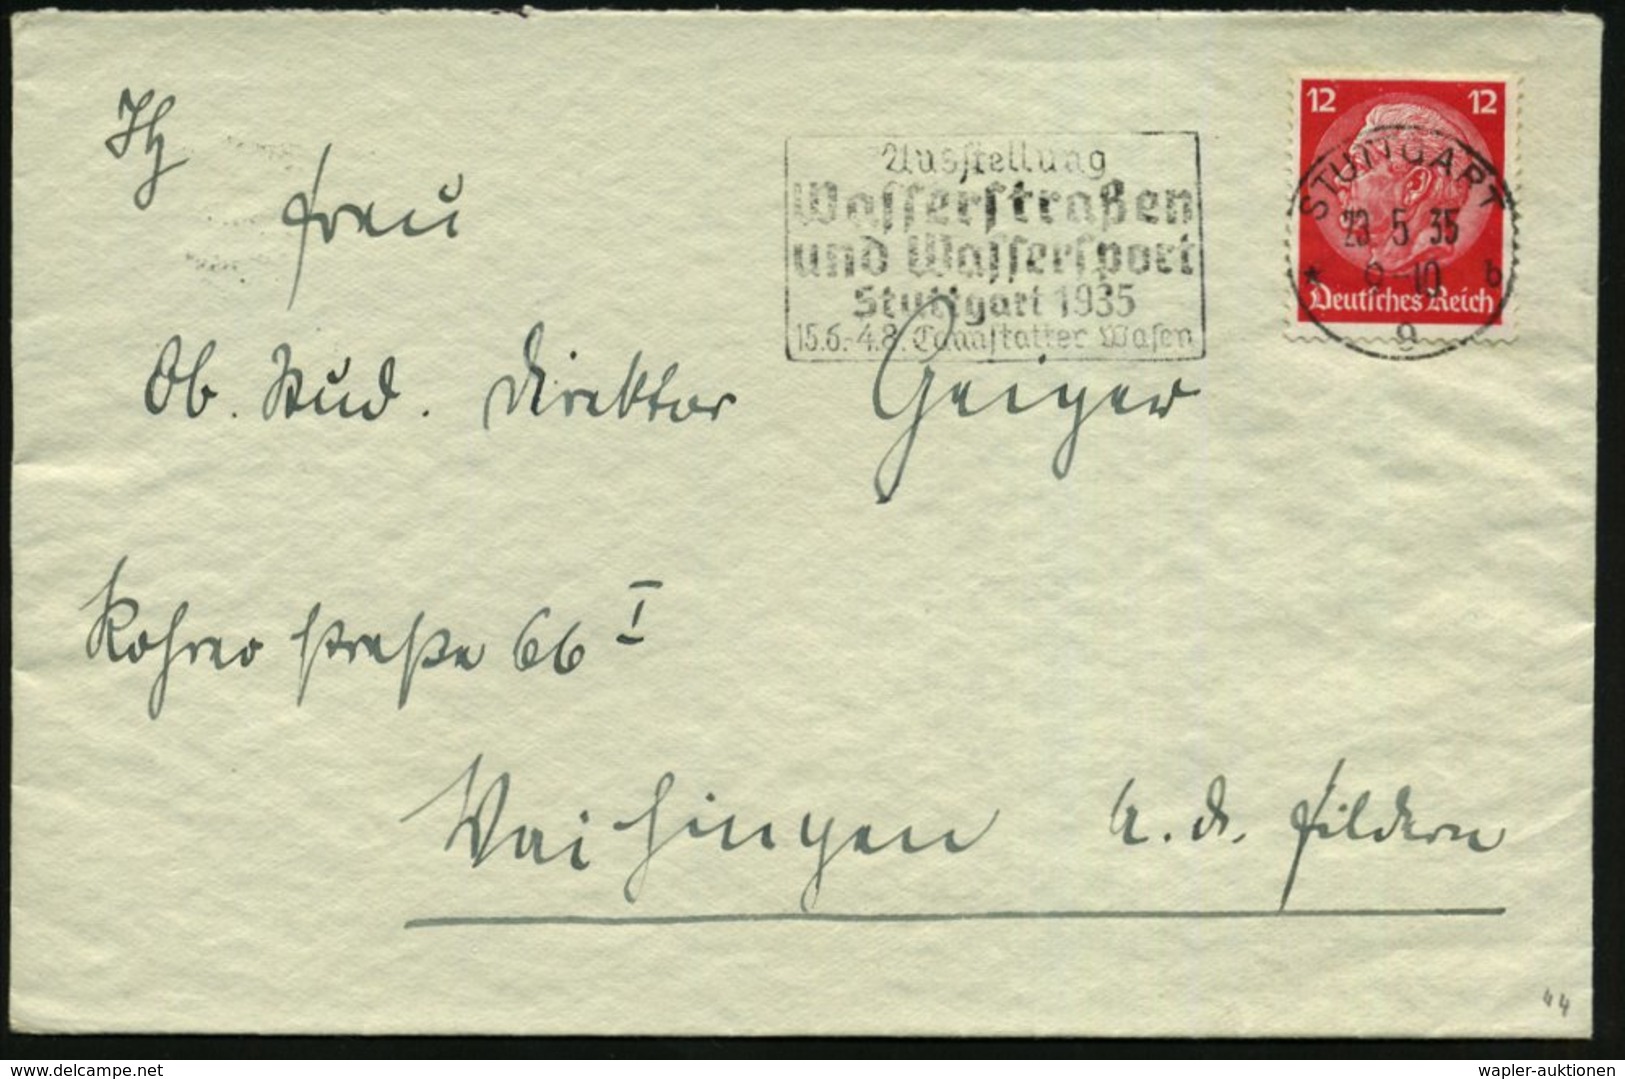 12 12
STUTTGART
23 5 35
10 b
9
Deutsches Reich
Ausstellung
Wasserstraßen
und Wassersport
Stuttgart 1935
15.6.-4.8. Cannstatter Wasen
Frau
Ob. Stud. Direktor Geiger
Rohrer Straße 66 I
Vaihingen a. d. Fildern
44
delcampe.net
wapler-auktionen